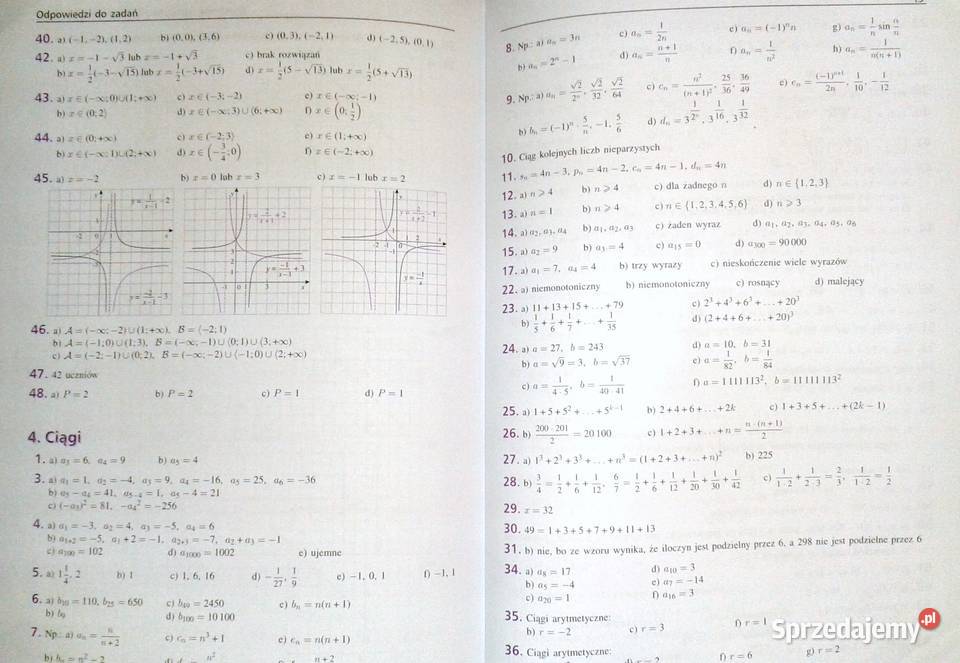 Odpowiedzi do zadań
40. a) (−1, −2), (1, 2) b) (0, 0), (3, 6) c) (0, 3), (−2, 1) d) (−2, 5), (0, 1)
42. a) x = −1 − √3 lub x = −1 + √3 c) brak rozwiązań
b) x = 1/2(−3−√15) lub x = 1/2(−3+√15) d) x = 1/2(5 − √13) lub x = 1/2(5 + √13)
43. a) x ∈ (−∞; 0)∪(1; +∞) c) x ∈ (−3; −2) e) x ∈ (−∞; −1)
b) x ∈ (0; 2) d) x ∈ (−∞; 3)∪(6; +∞) f) x ∈ (0; 1/2)
44. a) x ∈ (0; +∞) c) x ∈ (−2; 3) e) x ∈ (1; +∞)
b) x ∈ (−∞; 1)∪(2; +∞) d) x ∈ (−3/4; 0) f) x ∈ (−2; +∞)
45. a) x = −2 b) x = 0 lub x = 3 c) x = −1 lub x = 2
46. a) A = (−∞; −2)∪(1; +∞), B = (−2; 1)
b) A = (−1; 0)∪(1; 3), B = (−∞; −1)∪(0; 1)∪(3; +∞)
c) A = (−2; −1)∪(0; 2), B = (−∞; −2)∪(−1; 0)∪(2; +∞)
47. 42 uczniów
48. a) P = 2 b) P = 2 c) P = 1 d) P = 1
4. Ciągi
1. a) a₃ = 6, a₄ = 9 b) a₅ = 4
3. a) a₁ = 1, a₂ = −4, a₃ = 9, a₄ = −16, a₅ = 25, a₆ = −36
b) a₅ − a₄ = 41, a₅₋₄ = 1, a₅ − 4 = 21
c) (−a₃)² = 81, −a₄² = −256
4. a) a₁ = −3, a₂ = 4, a₃ = −5, a₄ = 6
b) a₁₊₂ = −5, a₁ + 2 = −1, a₂₊₃ = −7, a₂ + a₃ = −1
c) a₁₀₀ = 102 d) a₁₀₀₀ = 1002 e) ujemne
5. a) 1 1/4, 2 b) 1 c) 1, 6, 16 d) −1/27, 1/9 e) −1, 0, 1 f) −1, 1
6. a) b₁₀ = 110, b₂₅ = 650 c) b₄₉ = 2450 e) bₙ = n(n + 1)
b) b₉ d) b₁₀₀ = 10 100
7. Np.: a) aₙ = n/(n+2) c) cₙ = n³ + 1 e) eₙ = n(n + 1)
b) bₙ = n² − 2
8. Np.: a) aₙ = 3n c) aₙ = 1/2n e) aₙ = (−1)ⁿn g) aₙ = 1/n sin
b) aₙ = 2ⁿ − 1 d) aₙ = (n+1)/n f) aₙ = 1/n² h) aₙ = 1/n(n+1)
9. Np.: a) aₙ = √2/2ⁿ, √2/32, √2/64 c) cₙ = n²/(n+1)², 25/36, 36/49 e) eₙ = (−1)ⁿ⁺¹/2n, 1/10, −1/12
b) bₙ = (−1)ⁿ · 5/n, −1, 5/6 d) dₙ = 3^(1/2ⁿ), 3^(1/16), 3^(1/32)
10. Ciąg kolejnych liczb nieparzystych
11. sₙ = 4n − 3, pₙ = 4n − 2, cₙ = 4n − 1, dₙ = 4n
12. a) n ⩾ 4 b) n ⩾ 4 c) dla żadnego n d) n ∈ {1, 2, 3}
13. a) n = 1 b) n ⩾ 4 c) n ∈ {1, 2, 3, 4, 5, 6} d) n ⩾ 3
14. a) a₂, a₃, a₄ b) a₁, a₂, a₃ c) żaden wyraz d) a₁, a₂, a₃, a₄, a₅, a₆
15. a) a₂ = 9 b) a₃ = 4 c) a₁₅ = 0 d) a₃₀₀ = 90 000
17. a) a₁ = 7, a₄ = 4 b) trzy wyrazy c) nieskończenie wiele wyrazów
22. a) niemonotoniczny b) niemonotoniczny c) rosnący d) malejący
23. a) 11 + 13 + 15 + … + 79 c) 2³ + 4³ + 6³ + … + 20³
b) 1/5 + 1/6 + 1/7 + … + 1/35 d) (2 + 4 + 6 + … + 20)³
24. a) a = 27, b = 243 d) a = 10, b = 31
b) a = √9 = 3, b = √37 e) a = 1/82, b = 1/84
c) a = 1/4·5, b = 1/40·41 f) a = 1 111 113², b = 11 111 113²
25. a) 1 + 5 + 5² + … + 5ᵏ⁻¹ b) 2 + 4 + 6 + … + 2k c) 1 + 3 + 5 + … + (2k − 1)
26. b) 200·201/2 = 20 100 c) 1 + 2 + 3 + … + n = n·(n+1)/2
27. a) 1³ + 2³ + 3³ + … + n³ = (1 + 2 + 3 + … + n)² b) 225
28. b) 3/4 = 1/2 + 1/6 + 1/12, 6/7 = 1/2 + 1/6 + 1/12 + 1/20 + 1/30 + 1/42 c) 1/1·2 + 1/2·3 = 2/3, 1/1·2 = 1/2
29. x = 32
30. 49 = 1 + 3 + 5 + 7 + 9 + 11 + 13
31. b) nie, bo ze wzoru wynika, że iloczyn jest podzielny przez 6, a 298 nie jest podzielne przez 6
34. a) a₈ = 17 d) a₁₀ = 3
b) a₅ = −4 e) a₇ = −14
c) a₂₀ = 1 f) a₁₆ = 3
35. Ciągi arytmetyczne:
b) r = −2 c) r = 3 f) r = 1
36. Ciągi arytmetyczne:
d) r = 2 f) r = 6 g) r = 2
Sprzedajemy.pl